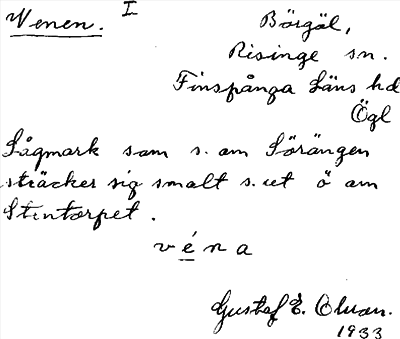 Venen. I
Börgöl,
Risinge sn.
Finspånga Läns hd
Ögl
Lågmark som s. om Sörängen
sträcker sig smalt s. ut ö om
Stentorpet.
véna
Gustaf E.
1933